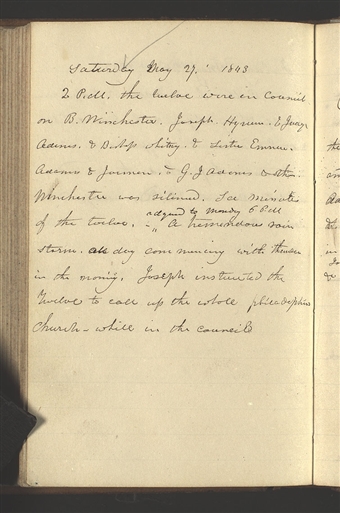 Saturday May 27. 1843
2 P.M. the twelve were in Council
on B. Winchester. Joseph. Hyrum. & Judge
Adams. & Bishop whitney. & Sister
Adams & & G. J Adams & others.
Winchester was silenced. See Minutes
adjourned to Monday 6 P M
of the twelve. -,, A tremendous rain
storm. all day commencing with thunder
in the morning. Joseph instructed the
Twelve to call up the whole philadelphia
Church - while in the council